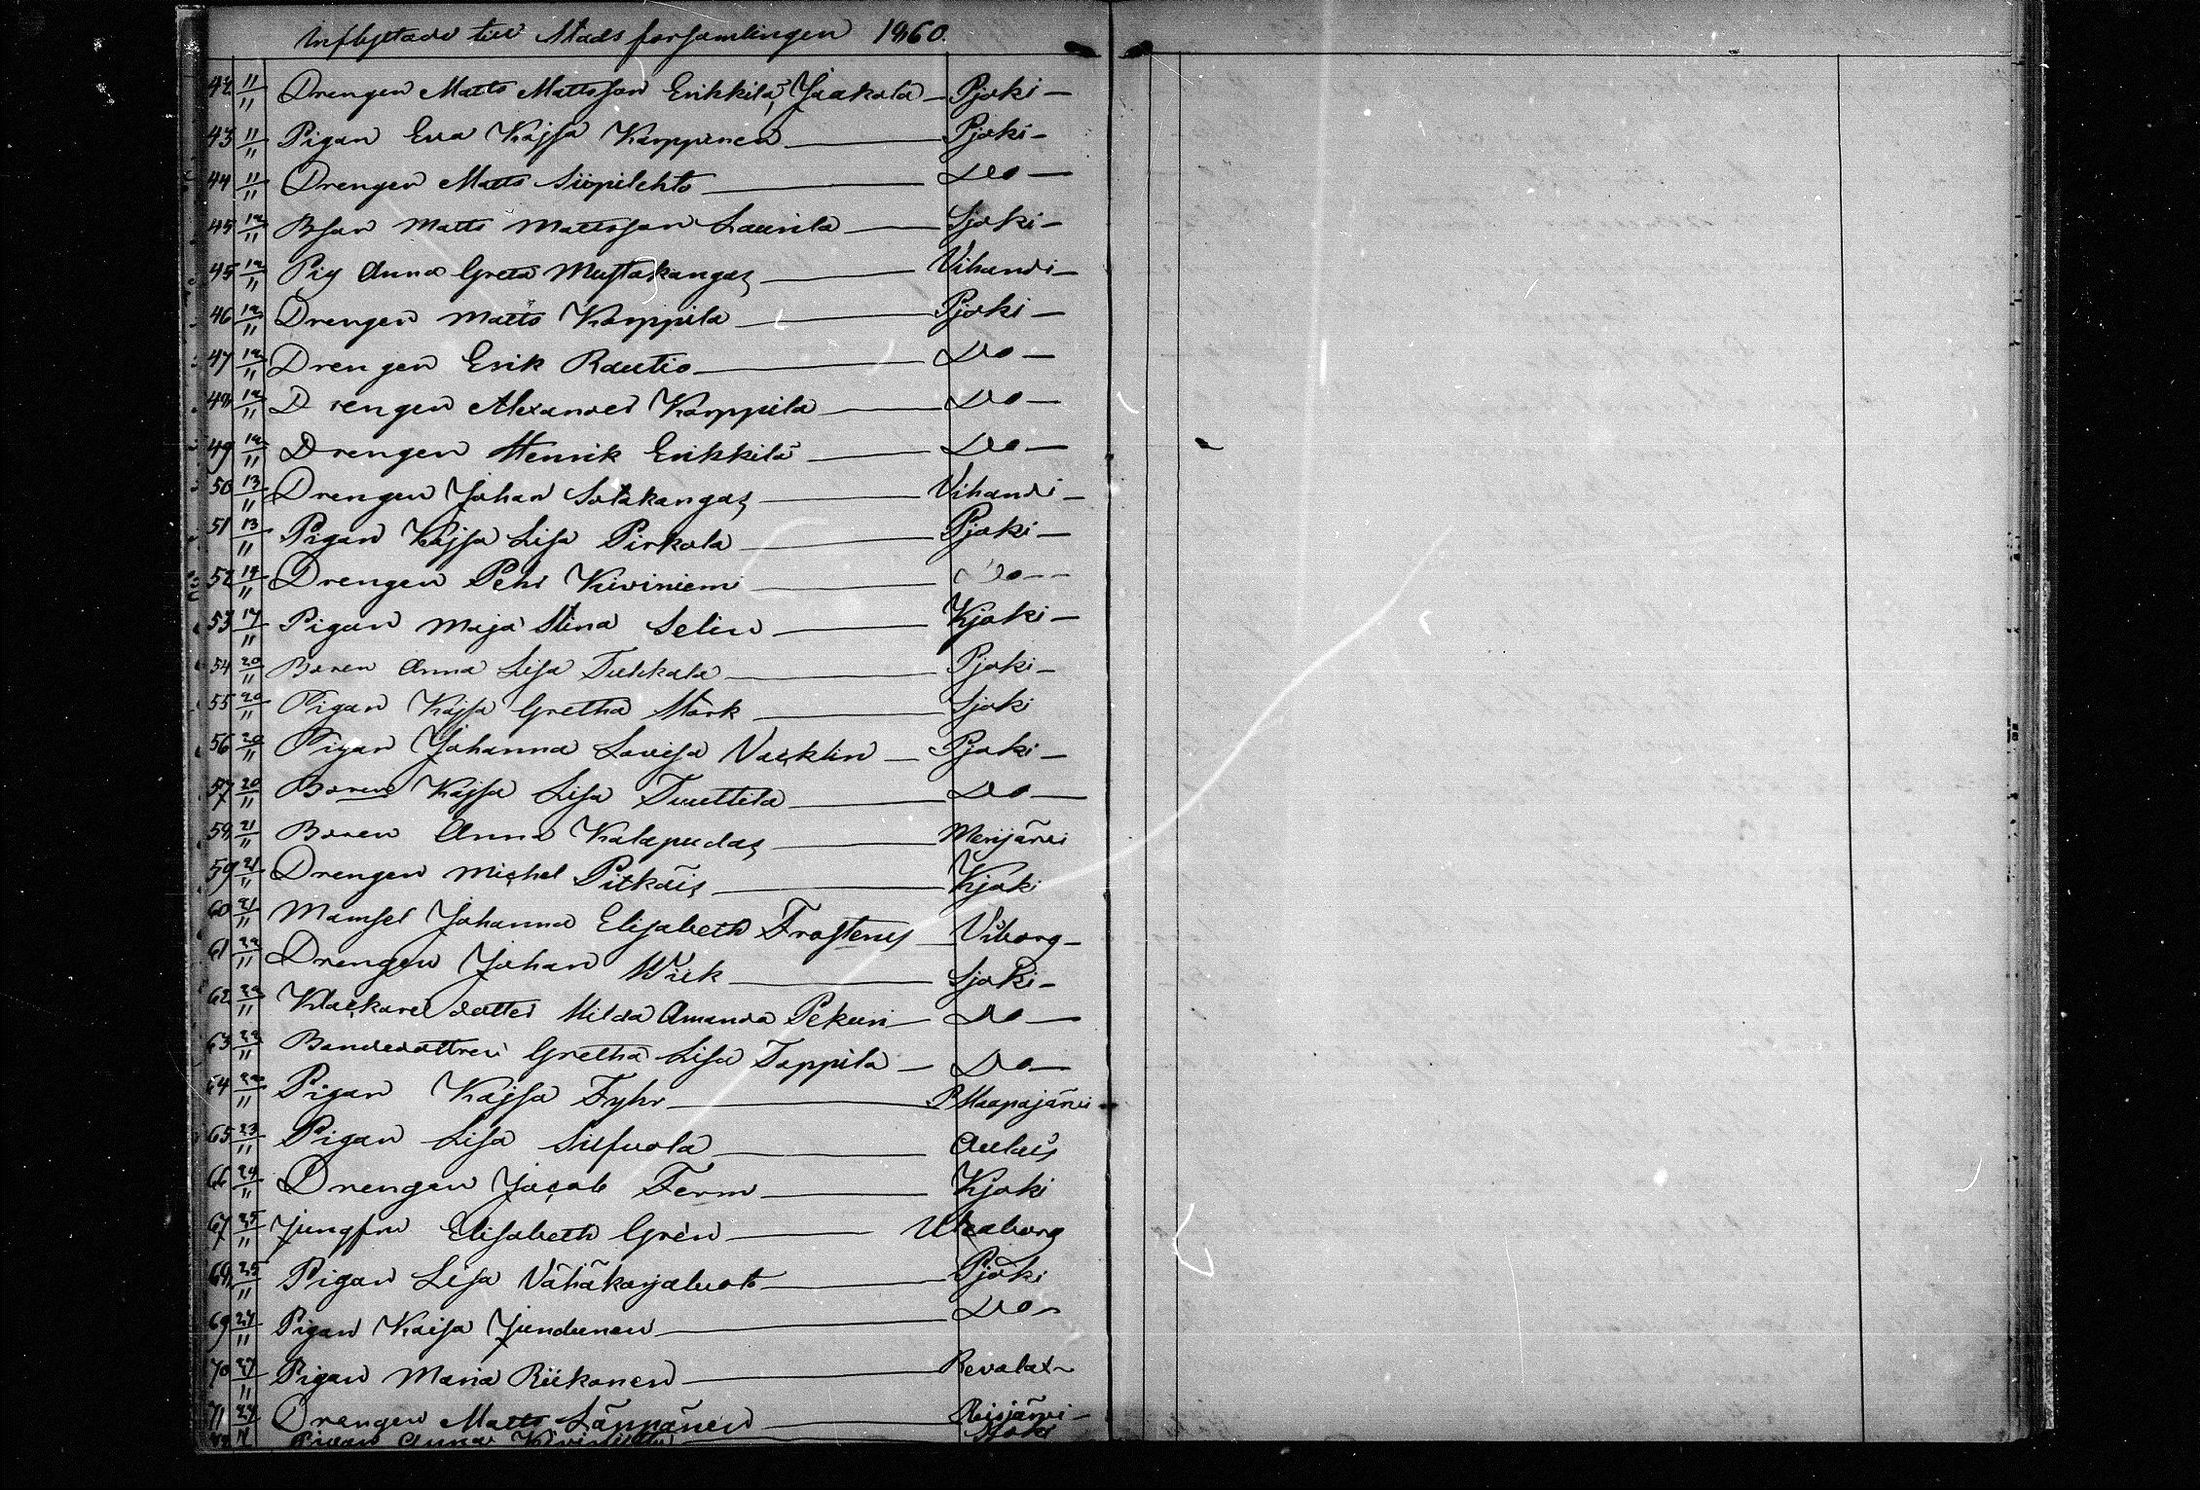 Inflyttade till Stads församlingen 1860.
42 11/11 Drengen Matts Mattsson Erikkilä, Jaakola Pjoki
43 11/11 Pigan Eva Kajsa Karppinen Pjoki
44 11/11 Drengen Matts Siipilehto Do
45 12/11 Bson Matts Mattsson Laurila Sjoki
45 12/11 Pig Anna Greta Mustakangas Vihandi
46 12/11 Drengen Matts Karppila Pjoki
47 12/11 Drengen Erik Rautio Do
48 12/11 Drengen Alexander Karppila Do
49 12/11 Drengen Henrik Erikkilä Do
50 13/11 Drengen Johan Sotakangas Vihandi
51 13/11 Pigan Kajsa Lisa Pirkola Pjoki
52 14/11 Drengen Pehr Kiviniemi Do
53 17/11 Pigan Maja Stina Selin Kjoki
54 20/11 Boren Anna Lisa Tukkala Pjoki
55 20/11 Pigan Kajsa Gretha Stark Sjoki
56 20/11 Pigan Johanna Lovisa Vacklin Pjoki
57 20/11 Boren Kajsa Lisa Tuuttila Do
58 21/11 Boren Anna Kalapudas Merijärvi
59 21/11 Drengen Michel Pitkäis Kjoki
60 21/11 Mamsel Johanna Elisabeth Frosterus Viborg
61 22/11 Drengen Johan Wiik Sjoki
62 22/11 Klockare dotter Hilda Amanda Pekuri Do
63 22/11 Bondedottren Gretha Lisa Tappila Do
64 22/11 Pigan Kajsa Fyhr PHaapajärvi
65 23/11 Pigan Lisa Aulais
66 24/11 Drengen Jacob Ferm Kjoki
67 25/11 Jungfru Elisabeth Grén Uleaborg
68 25/11 Pigan Lisa Vähäkarjaluoto Pjoki
69 27/11 Pigan Kaisa Junnunen Do
70 27/11 Pigan Maria Riikonen Revolax
71 27/11 Drengen Matts Lämpänen Reisjärvi
Pigan Anna